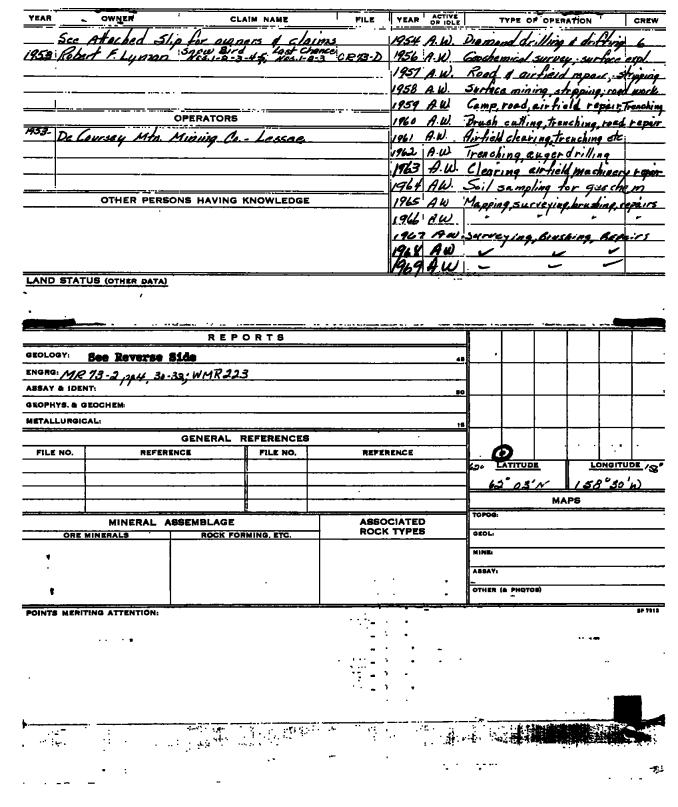 YEAR OWNER CLAIM NAME FILE YEAR ACTIVE OR IDLE TYPE OF OPERATION CREW
See Attached Slip for owners & claims
1953 Robert F. Lyman Snow Bird Nos. 1-2-3-4-5, Last Chance Nos. 1-2-3 CR73-D
OPERATORS
1953- De Coursay Mtn. Mining Co. - Lessee
OTHER PERSONS HAVING KNOWLEDGE
1954 A.W. Diamond drilling & drifting 6
1956 A.W. Geochemical survey, surface expl.
1957 A.W. Road & airfield repair, stripping
1958 A.W. Surface mining, stripping, road work
1959 A.W. Camp, road, airfield repair, Trenching
1960 A.W. Brush cutting, trenching, road repair
1961 A.W. Airfield clearing, trenching etc
1962 A.W. Trenching, auger drilling
1963 A.W. Clearing airfield, machinery repair
1964 A.W. Soil sampling for geochem
1965 AW Mapping, surveying, brushing, repairs
1966 AW " " "
1967 AW Surveying, Brushing, Repairs
1968 AW
1969 AW
LAND STATUS (OTHER DATA)
REPORTS
GEOLOGY: See Reverse Side 45
ENGRG: MR 73-2, pp4, 30-38; WMR 223
ASSAY & IDENT: 30
GEOPHYS. & GEOCHEM:
METALLURGICAL: 15
GENERAL REFERENCES
FILE NO. REFERENCE FILE NO. REFERENCE
62° LATITUDE LONGITUDE
62° 03' N 158° 30' W
MAPS
TOPOG:
GEOL:
MINE:
ASSAY:
OTHER (& PHOTOS)
MINERAL ASSEMBLAGE ASSOCIATED ROCK TYPES
ORE MINERALS ROCK FORMING, ETC.
POINTS MERITING ATTENTION: